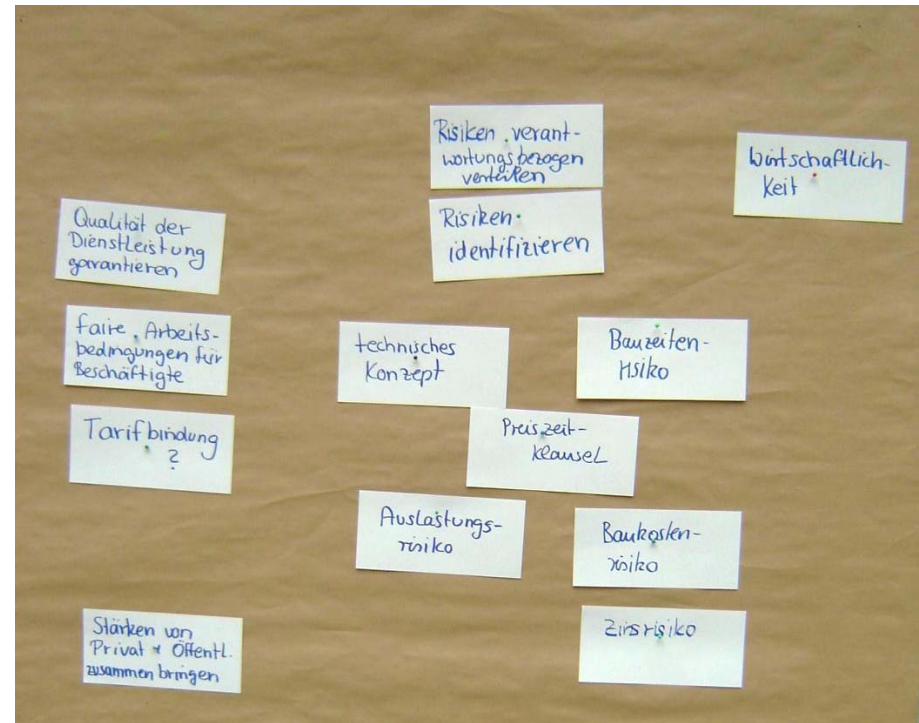 Risiken verant-
wortungsbezogen
verteilen
Wirtschaftlich-
keit
Qualität der
Dienstleistung
garantieren
Risiken
identifizieren
faire Arbeits-
bedingungen für
Beschäftigte
technisches
Konzept
Bauzeiten-
risiko
Tarifbindung
?
Preiszeit-
klausel
Auslastungs-
risiko
Baukosten-
risiko
Stärken von
Privat + Öffentl.
zusammen bringen
Zinsrisiko